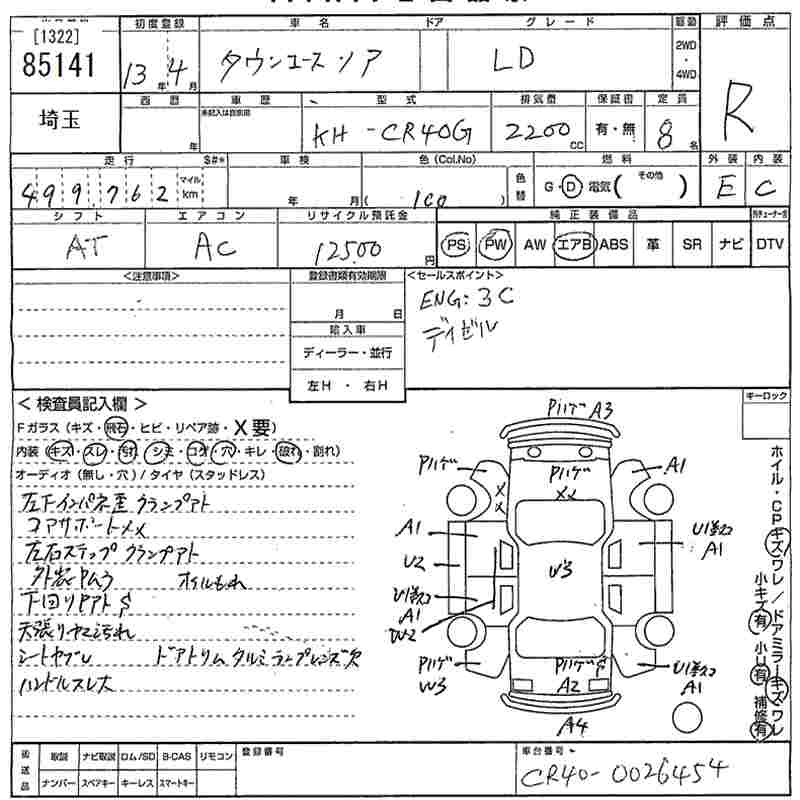 [1322]
85141
埼玉
初度登録
13年 4月
車名
タウンエース ノア
ドア
グレード
LD
駆動
2WD
・
4WD
評価点
R
西暦
年
車歴
型式
KH-CR40G
排気量
2200 CC
保証書
有・無
定員
8名
走行
499,762
マイル
km
S#*
車検
年 月(
色(Col.No)
100
)
色替
燃料
G・D 電気( その他 )
外装
E
内装
C
シフト
AT
エアコン
AC
リサイクル預託金
12500円
純正装備品
PS PW AW エアB ABS 革 SR ナビ DTV
<注意事項>
登録書類有効期限
月 日
輸入車
ディーラー・並行
左H ・ 右H
<セールスポイント>
ENG: 3C
ディゼル
<検査員記入欄>
Fガラス (キズ・飛石・ヒビ・リペア跡・X要)
内装 (キズ・スレ・汚れ・シミ・コゲ・穴・キレ・破れ・割れ)
オーディオ (無し・穴) / タイヤ (スタッドレス)
左下インパネ歪 クランプアト
コアサポートXX
左右ステップ クランプアト
外装ヤムラ オイルもれ
下回りヤアト S
天張りヤケ汚れ
シートヤブレ ドアトリム タルミ ランプレンズ欠
ハンドルスレ大
Pハゲ A3
Pハゲ
Pハゲ
A1
XX
XX
A1
U2
A1
W3
A1
W2
Pハゲ
W3
Pハゲ S
A2
A1
A4
キーロック
ホイル・CPキズワレ / ドアミラーキズ・ワレ
小キズ有 小U有 補修有
後送品
取説 ナビ取説 ロム/SD B-CAS リモコン
ナンバー スペアキー キーレス スマートキー
登録番号
車台番号
CR40-0026454